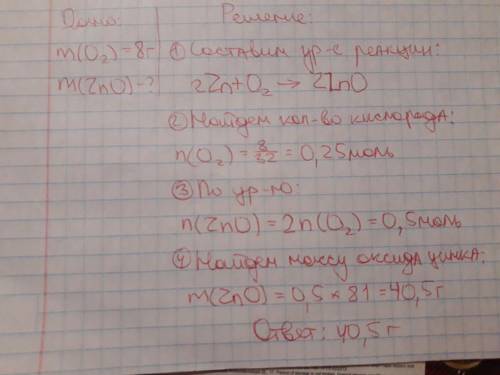 Дано:
m(O₂)=8г
m(ZnO)-?
Решение:
① Составим ур-е реакции:
2Zn+O₂→2ZnO
② Найдем кол-во кислорада:
n(O₂)=8/32=0,25моль
③ По ур-ю:
n(ZnO)=2n(O₂)=0,5моль
④ Найдем массу оксида цинка:
m(ZnO)=0,5*81=40,5г
Ответ: 40,5г